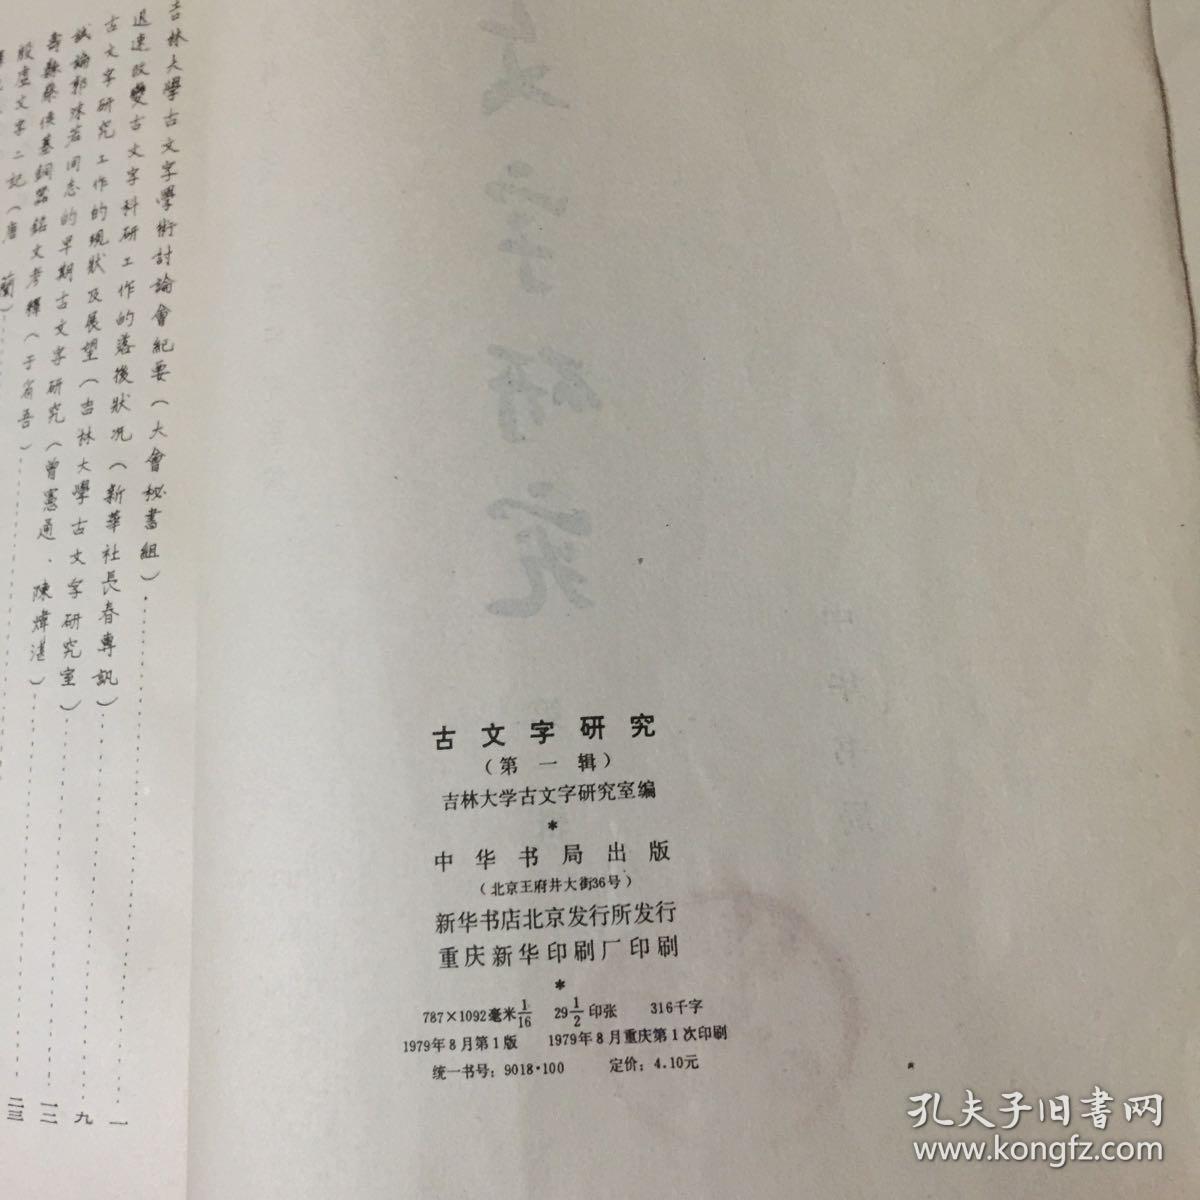 古文字研究
(第一辑)
吉林大学古文字研究室编
*
中华书局出版
(北京王府井大街36号)
新华书店北京发行所发行
重庆新华印刷厂印刷
*
787×1092毫米1/16 29 1/2印张 316千字
1979年8月第1版 1979年8月重庆第1次印刷
统一书号：9018·100 定价：4.10元
吉林大學古文字學術討論會紀要(大會秘書組)……一
迅速改變古文字科研工作的落後狀况(新華社長春專訊)……九
古文字研究工作的現狀及展望(吉林大學古文字研究室)……
試論郭沫若同志的早期古文字研究(曾憲通、陳煒湛)……
壽縣蔡侯墓銅器銘文考釋(于省吾)……
殷虚文字二記(唐 蘭)……
孔夫子旧书网
www.kongfz.com